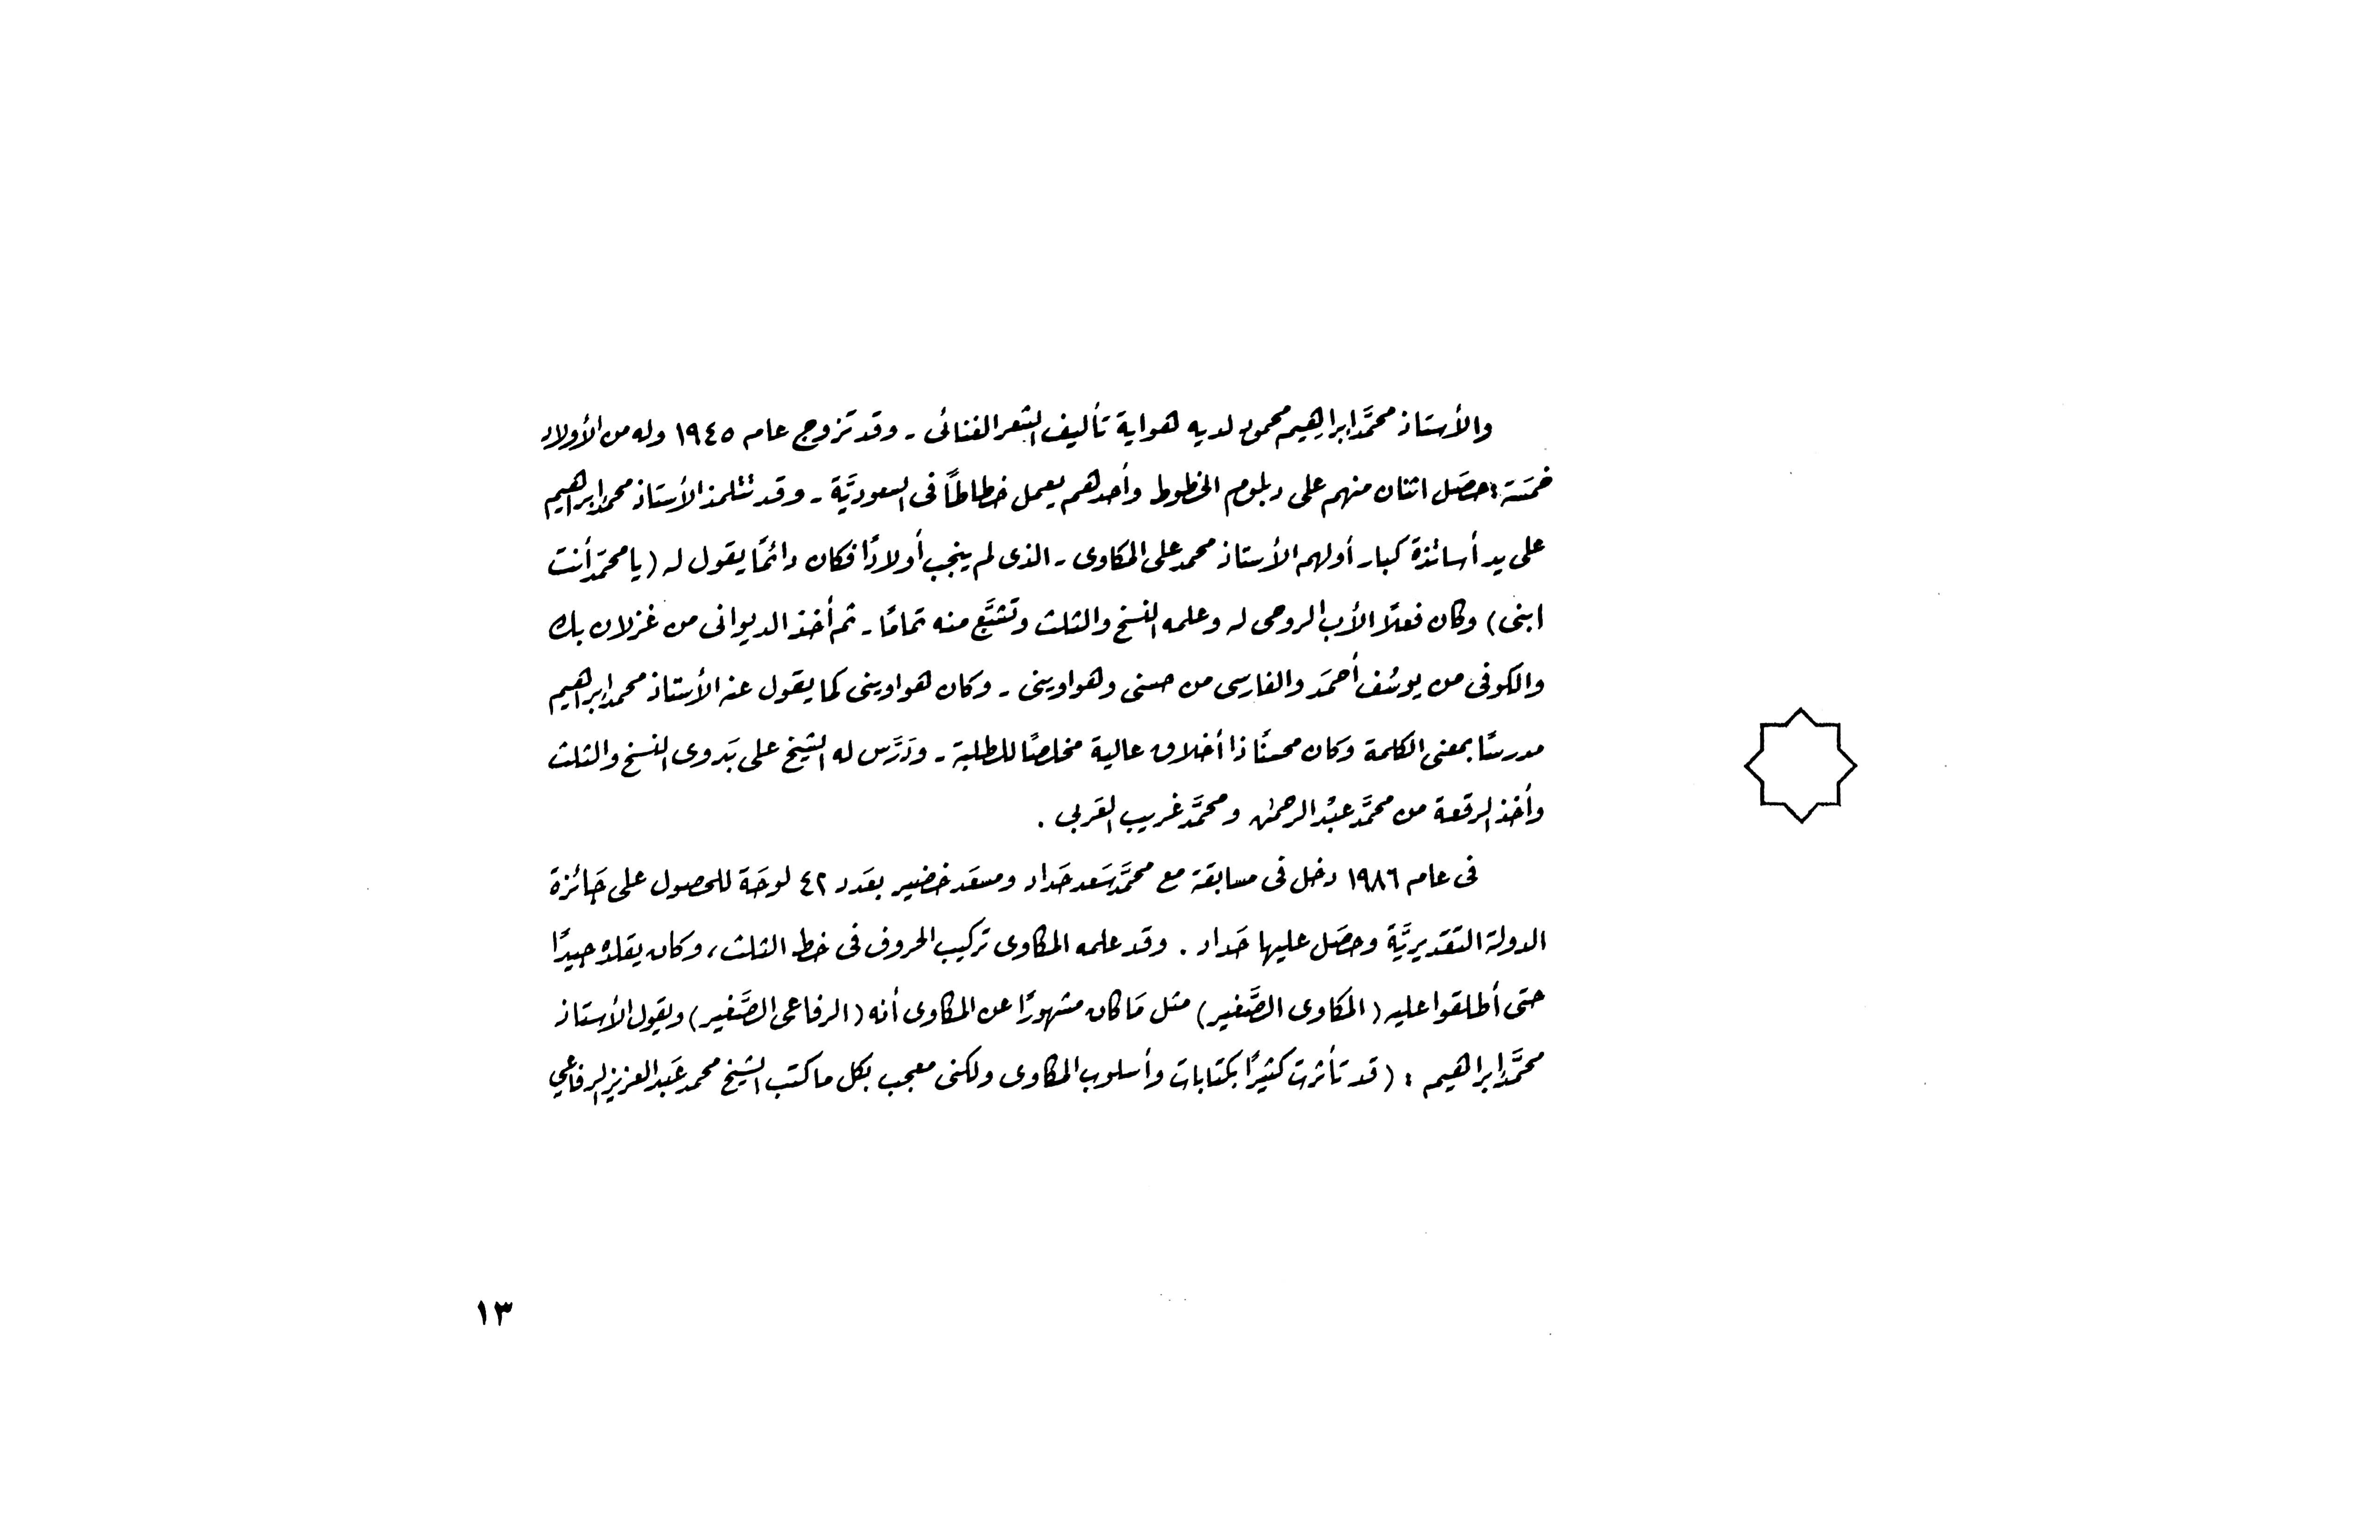 والأستاذ محمَّد إبراهيم محمود لديه هواية تأليف الشعر الغنائى - وقد تزوج عام ١٩٤٥ وله من الأولاد
خمسَة : حصَل اثنان منهم على دبلوم الخطوط وأحدهم يعمل خطاطاً فى السعوديَّة - وقد تتلمذ الأستاذ محمد إبراهيم
على يد أساتذة كبار أولهم الأستاذ محمد على المكاوى - الذى لم ينجب أولادًا فكان دائمًا يقول له (يا محمّد أنت
ابنى) وكان فعلاً الأب الروحى له وعلمه النسخ والثلث وتشبَّع منه تمامًا - ثم أخذ الديوانى من غزلان بك
والكوفى من يوسُف أحمَد والفارسى من حسنى وهواوينى - وكان هواوينى كما يقول عنه الأستاذ محمد إبراهيم
مدرسًا بمعنى الكلمة وكان محسنًا ذا أخلاق عالية مخلصًا للطلبة - ودَرَّس له الشيخ على بَدوى النسخ والثلث
وأخذ الرقعة من محمَّد عبْد الرحمن ومحمَّد غريب العَربى .
فى عام ١٩٨٦ دخل فى مسابقة مع محمَّد سَعد حَداد ومسعَد خضير بعَدد ٤٢ لوحَة للحصول على جَائزة
الدولة التقديريَّة وحصَل عليها حَداد . وقد علمه المكاوى تركيب الحروف فى خط الثلث ، وكان يقلده جيدًا
حتى أطلقوا عليه (المكاوى الصَّغير) مثل مَا كان مشهورًا عن المكاوى أنه (الرفاعى الصَّغير) ويقول الأستاذ
محمَّد إبراهيم : (قد تأثرت كثيرًا بكتابات وأسلوب المكاوى ولكنى معجب بكل ما كتب الشيخ محمد عَبد العزيز الرفاعي
١٣